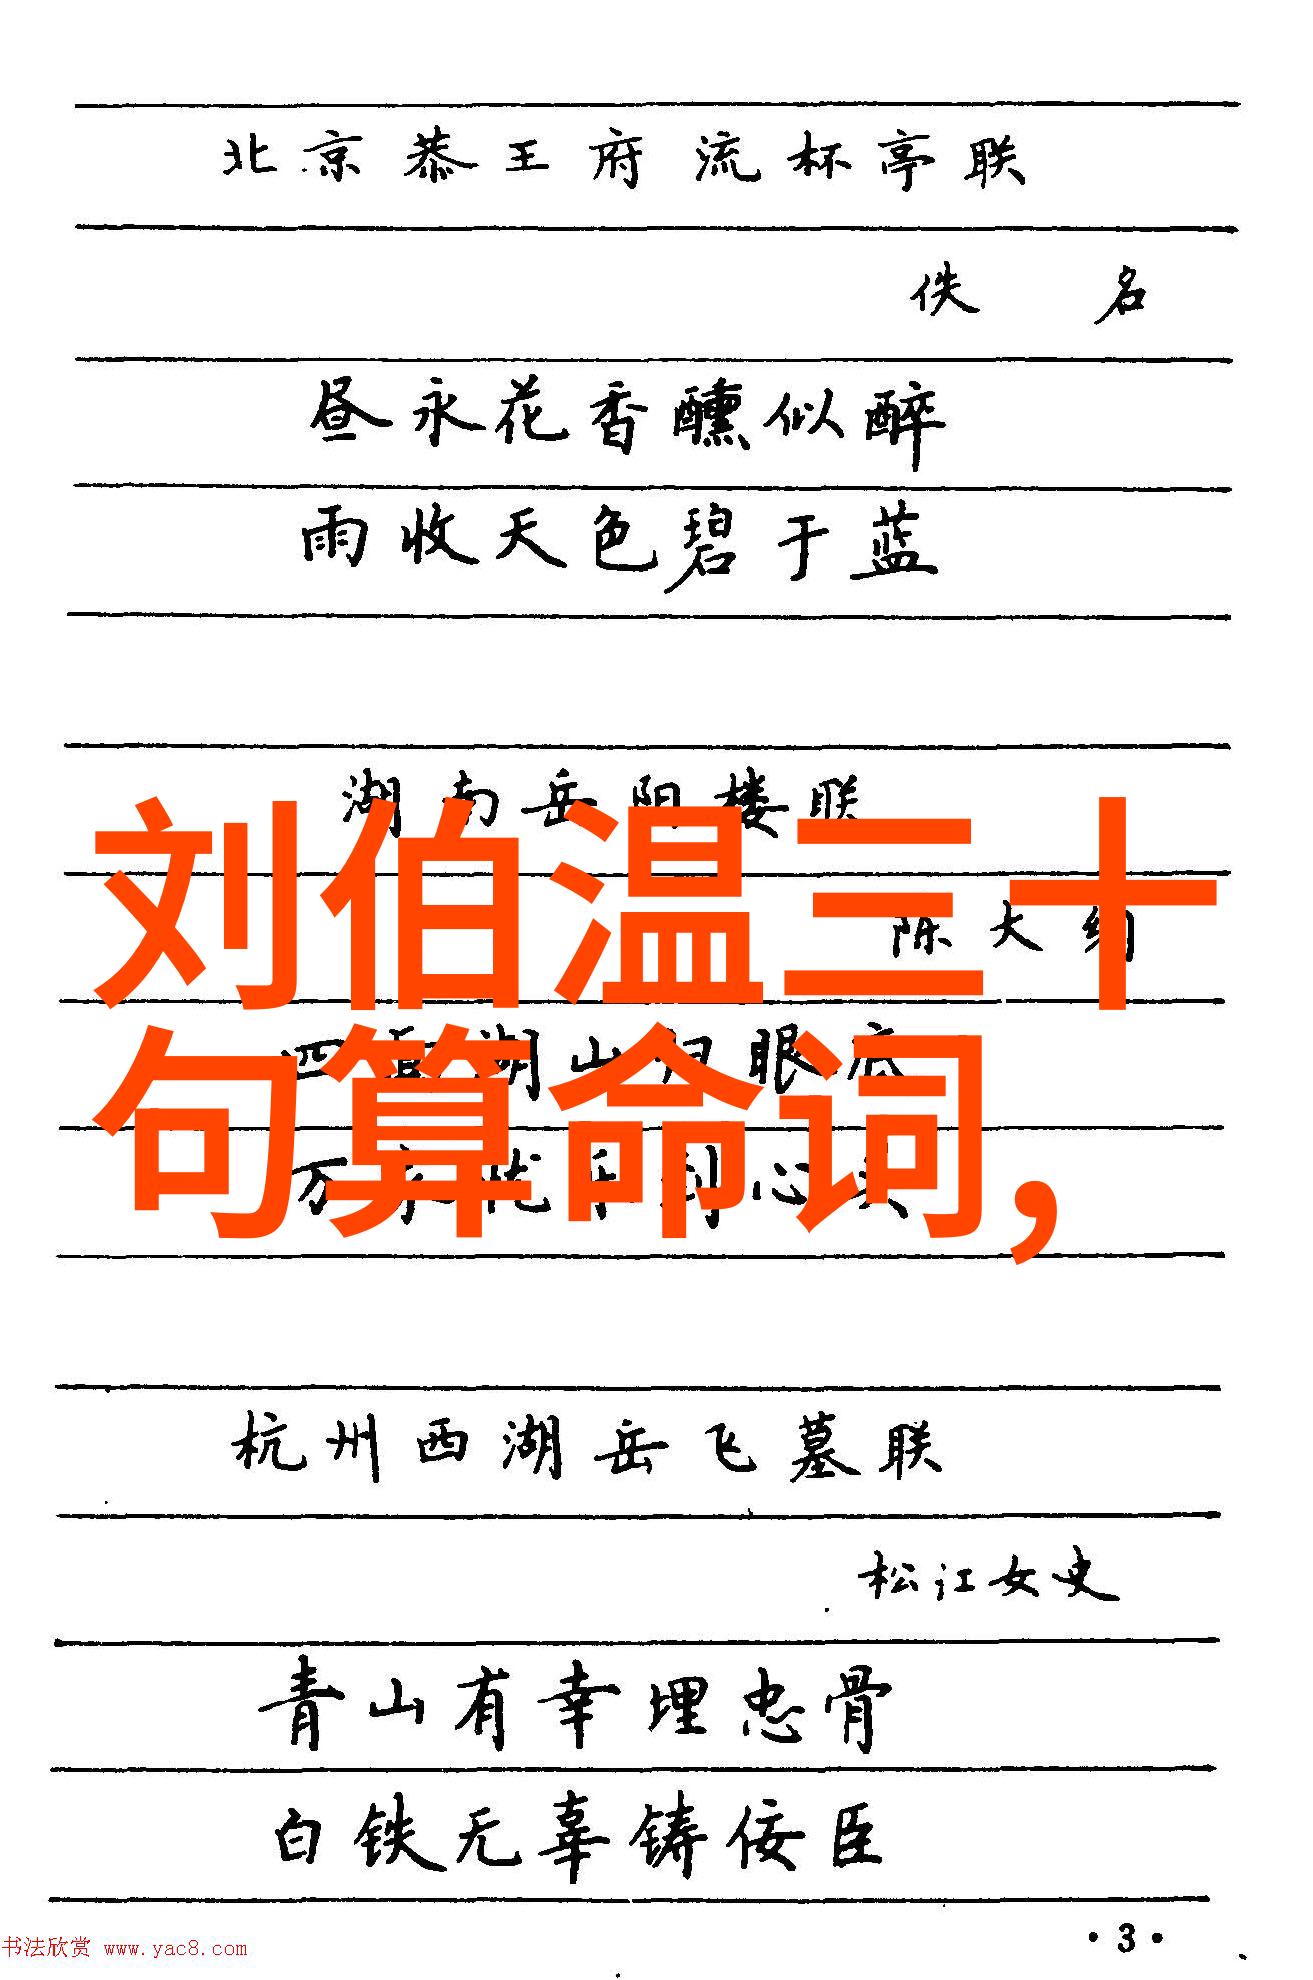 北京恭王府流杯亭联
佚名
昼永花香醺似醉
雨收天色碧于蓝
湖南岳阳楼联
刘伯温三十
陈大纲
四面湖山归眼底
句算命词，
万家忧乐到心头
杭州西湖岳飞墓联
松江女史
青山有幸埋忠骨
白铁无辜铸佞臣
·3·
书法欣赏 www.yac8.com